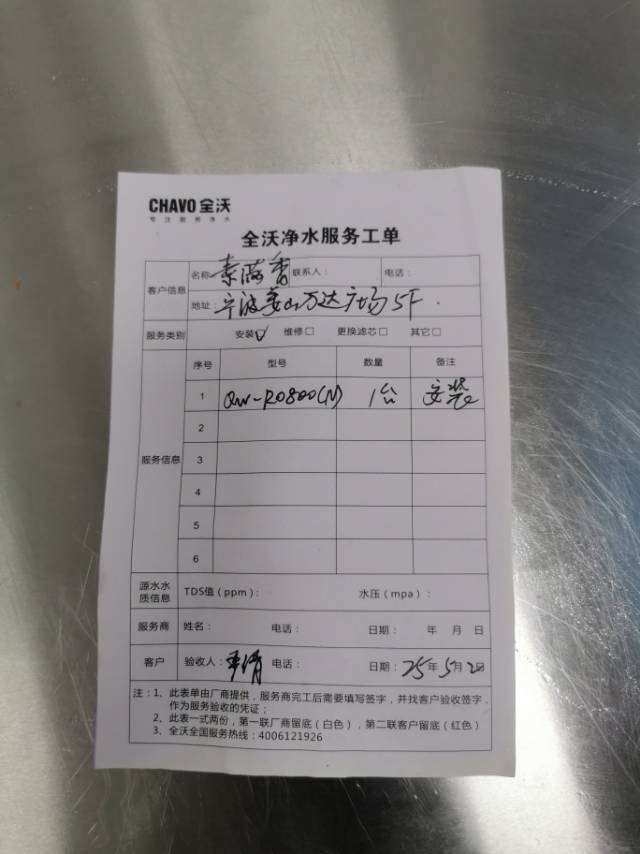 CHAVO 全沃
专注厨房净水
全沃净水服务工单
客户信息 名称 素满香 联系人： 电话：
地址：宁波姜山万达广场5F.
服务类别 安装☑ 维修□ 更换滤芯□ 其它□
服务信息 序号 型号 数量 备注
1 QW-RO800(N) 1台 安装
2
3
4
5
6
源水水质信息 TDS值（ppm）： 水压（mpa）：
服务商 姓名： 电话： 日期： 年 月 日
客户 验收人： 电话： 日期：25年5月2日
注：1、此表单由厂商提供，服务商完工后需要填写签字，并找客户验收签字，
作为服务验收的凭证；
2、此表一式两份，第一联厂商留底（白色），第二联客户留底（红色）
3、全沃全国服务热线：4006121926